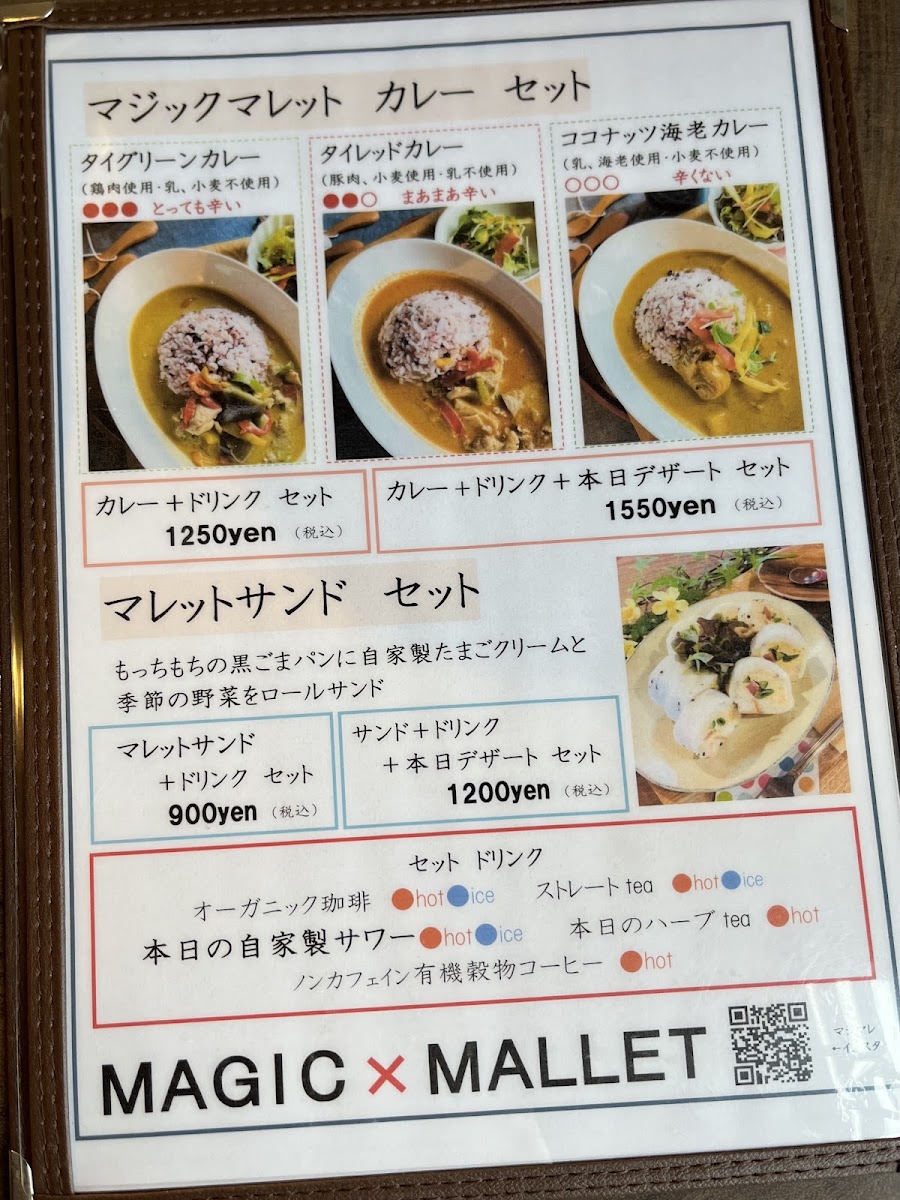 マジックマレット カレー セット
タイグリーンカレー
（鶏肉使用・乳、小麦不使用）
●●● とっても辛い
タイレッドカレー
（豚肉、小麦使用・乳不使用）
●●○ まあまあ辛い
ココナッツ海老カレー
（乳、海老使用・小麦不使用）
○○○ 辛くない
カレー＋ドリンク セット
1250yen （税込）
カレー＋ドリンク＋本日デザート セット
1550yen （税込）
マレットサンド セット
もっちもちの黒ごまパンに自家製たまごクリームと
季節の野菜をロールサンド
マレットサンド
＋ドリンク セット
900yen （税込）
サンド＋ドリンク
＋本日デザート セット
1200yen （税込）
セット ドリンク
オーガニック珈琲 ●hot●ice
ストレートtea ●hot●ice
本日の自家製サワー●hot●ice
本日のハーブtea ●hot
ノンカフェイン有機穀物コーヒー ●hot
MAGIC×MALLET